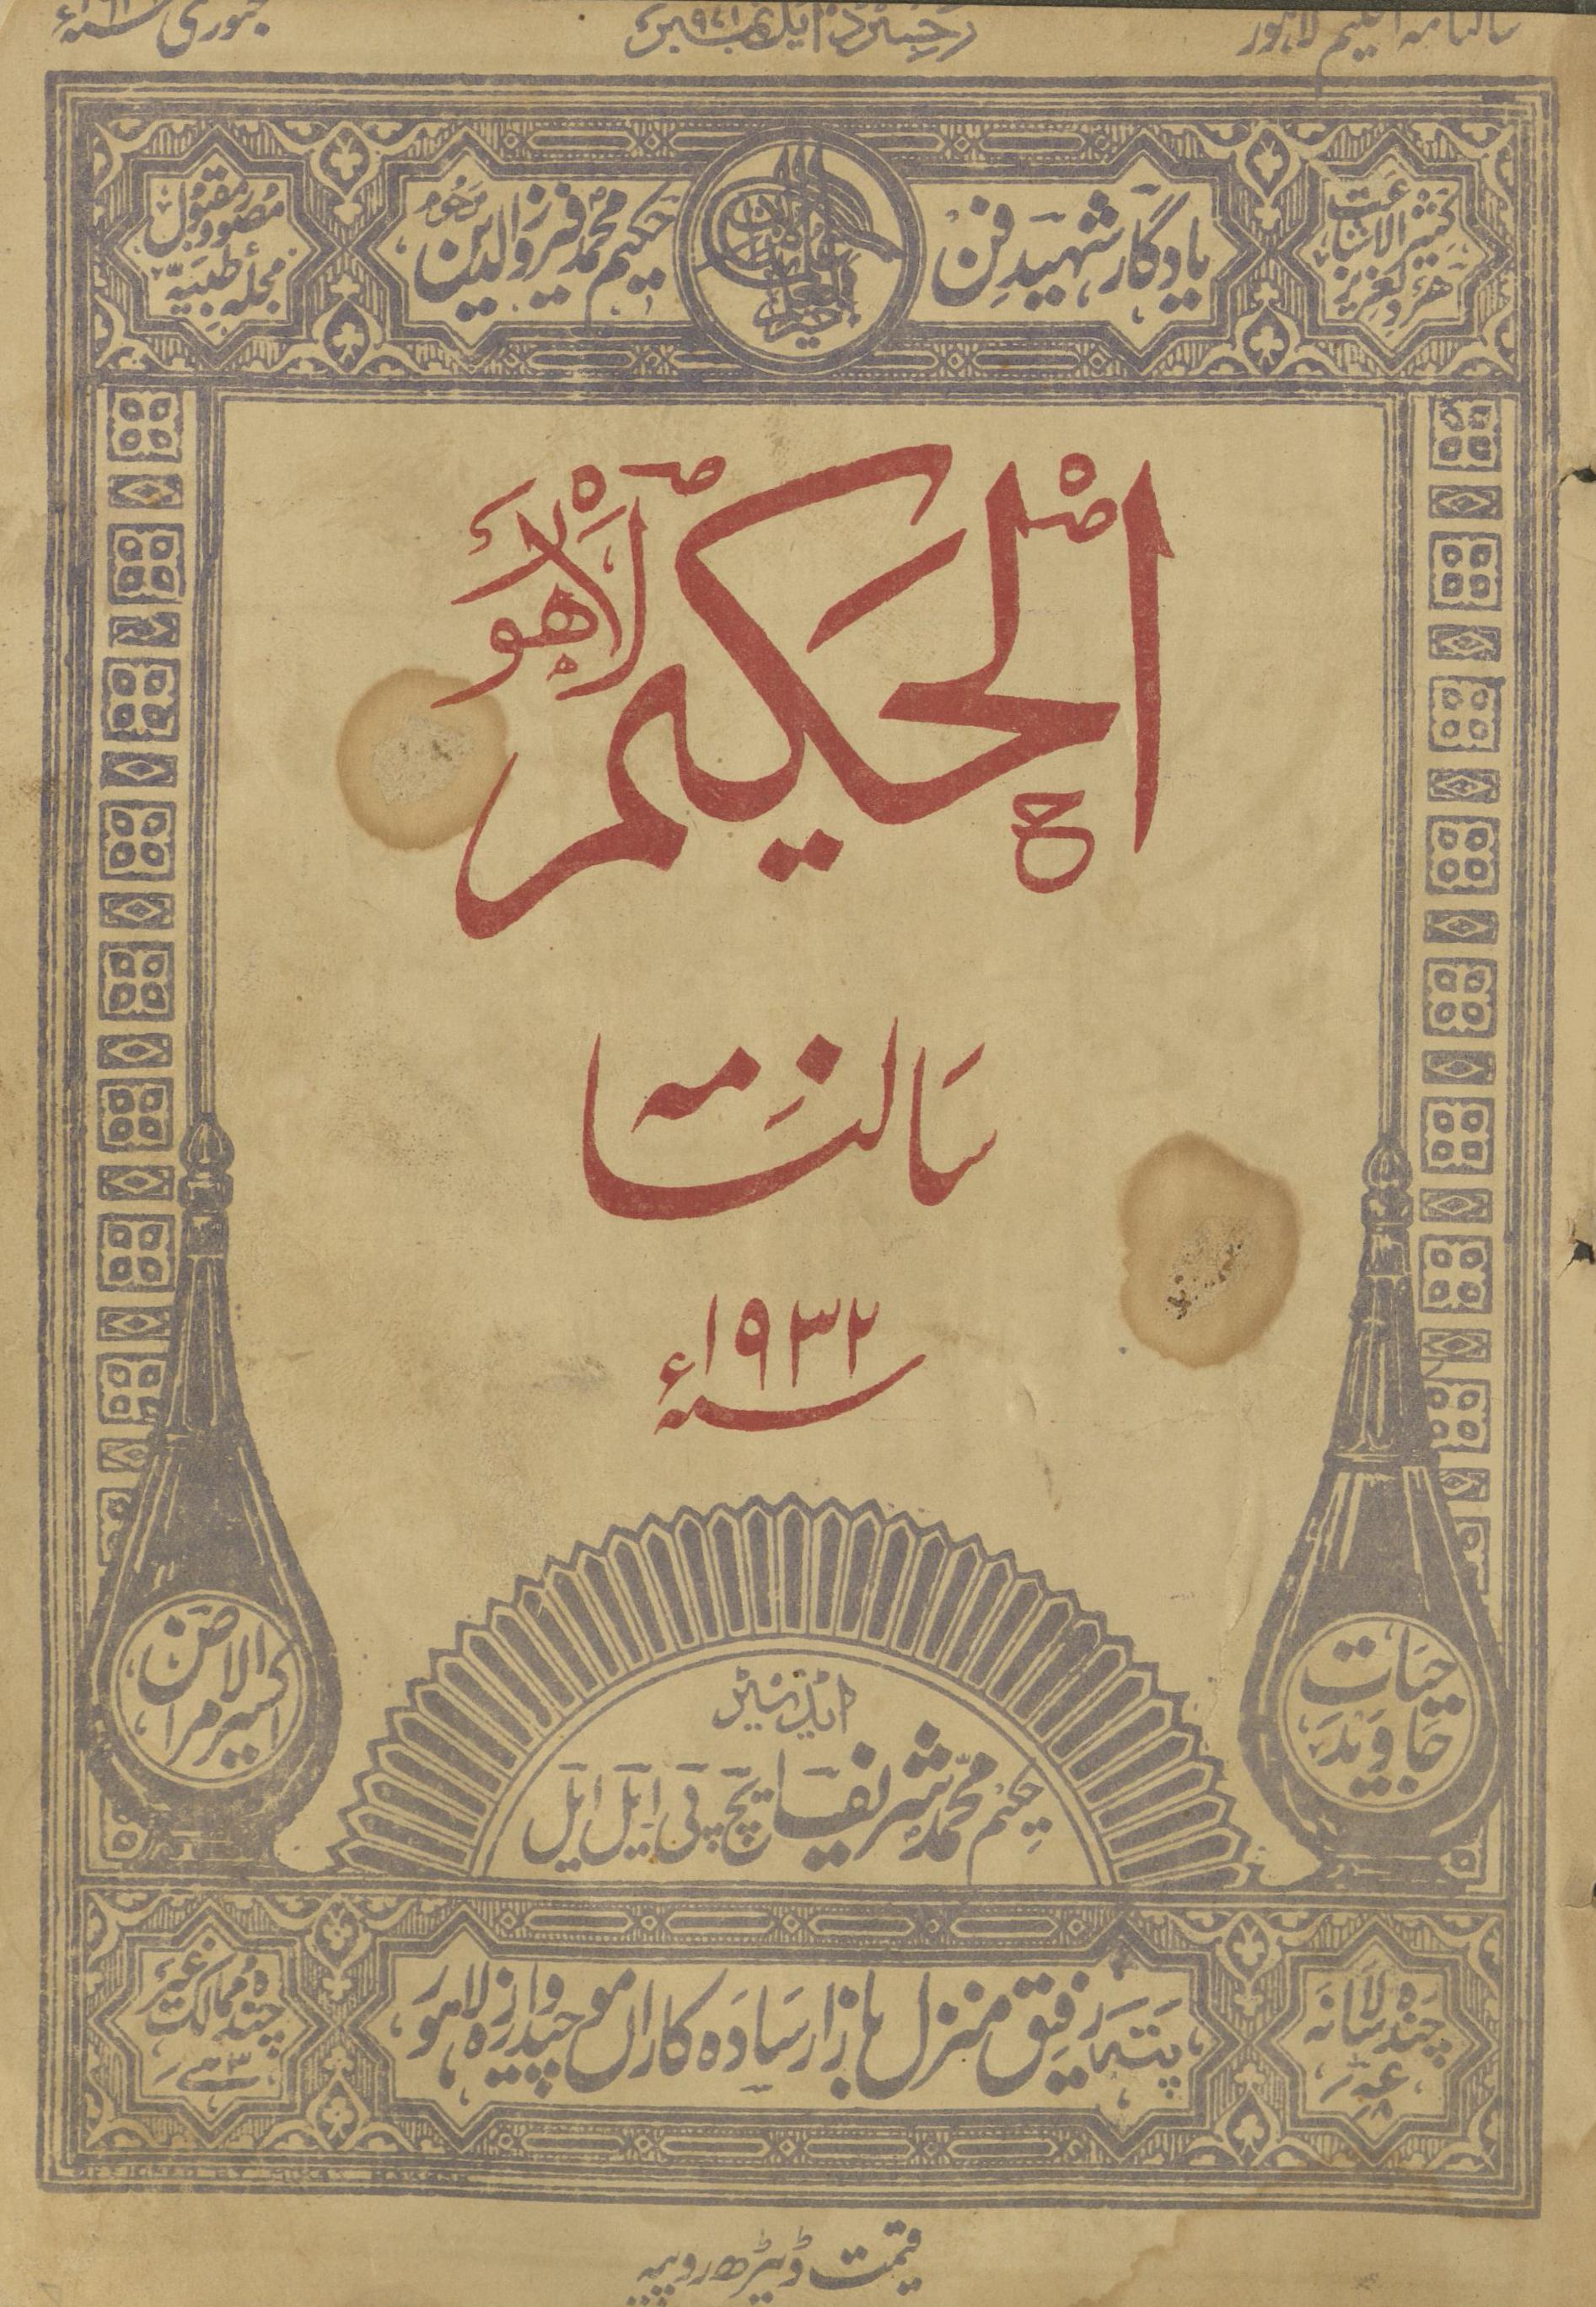 سالنامہ الحکیم لاہور
رجسٹرڈ ایل نمبر ۹۴۱
جنوری
کثیر الاشاعت
ہردلعزیز
یادگار شہید فن
حکیم محمد فیروزالدین مرحوم
مصور و مقبول
مجلہ طبیہ
الحکیم لاہور
سالنامہ
۱۹۳۲ء
حیات
جاوید
اکسیر الامراض
ایڈیٹر
حکیم محمد شریف ایچ پی ایل ایل
چندہ سالانہ
پتہ رفیق منزل بازار سادہ کاراں موچیدروازہ لاہور
چندہ ممالک غیر
DESIGNED BY
قیمت ڈیڑھ روپیہ